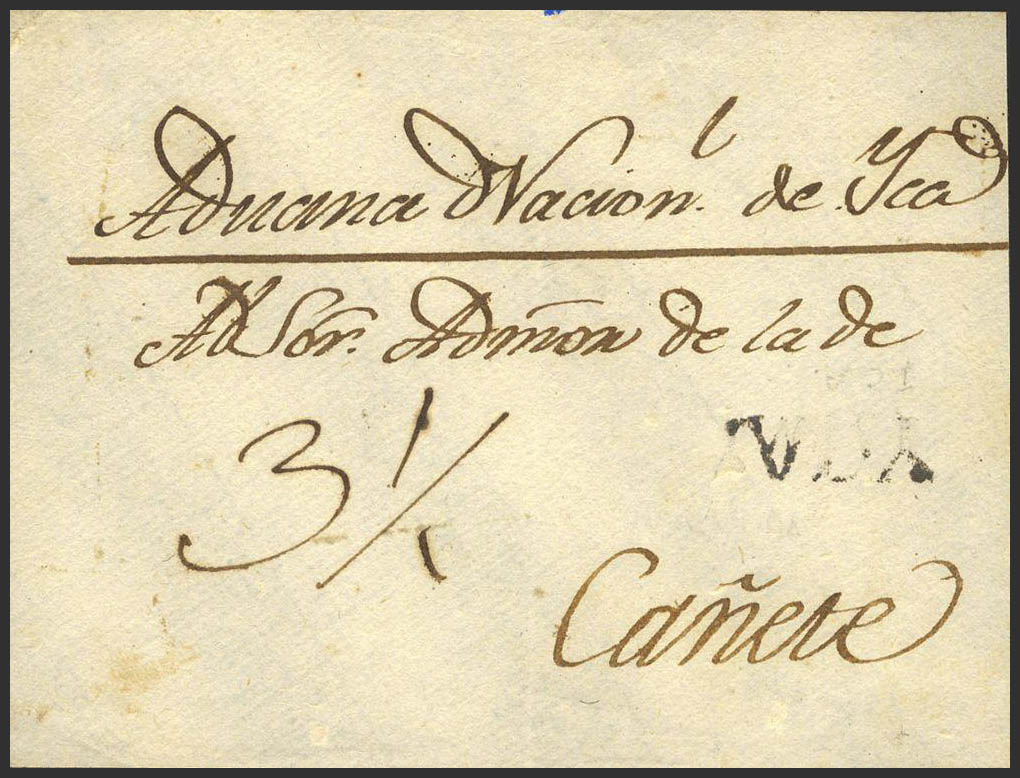 Aduana Nacion.l de Yca
Al Sor. Admōn de la de
3 1/2
Cañete